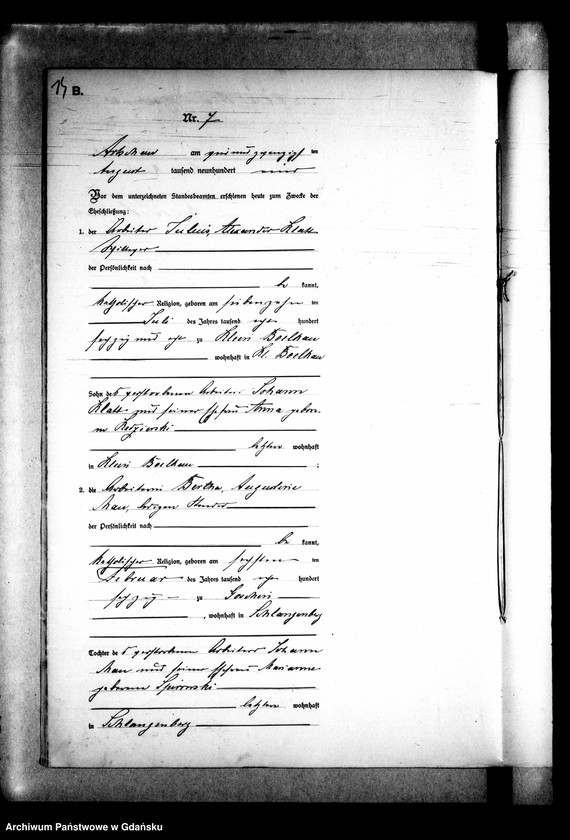 B.
Nr. 7
am zwei und zwanzigsten
August tausend neunhundert
Vor dem unterzeichneten Standesbeamten erschienen heute zum Zwecke der
Eheschließung:
1. der Arbeiter Julius, Alexander Klatt
der Persönlichkeit nach
be kannt,
katholischer Religion, geboren am siebenzehn ten
Juli des Jahres tausend acht hundert
sechzig und acht zu Klein Boelkau
wohnhaft in Kl. Boelkau
Sohn des verstorbenen Arbeiters Johann
Klatt und seiner Ehefrau Anna gebore-
ne
letztere wohnhaft
in Klein Boelkau ;
2. die Arbeiterin Bertha, Augustine
Mau, ledigen Standes
der Persönlichkeit nach
be kannt,
katholischer Religion, geboren am sechsten ten
Februar des Jahres tausend acht hundert
sechzig zu
, wohnhaft in Schlangenberg
Tochter des verstorbenen Arbeiters Johann
Mau und seiner Ehefrau Marianne
geborenen
letztere wohnhaft
in Schlangenberg
Archiwum Państwowe w Gdańsku